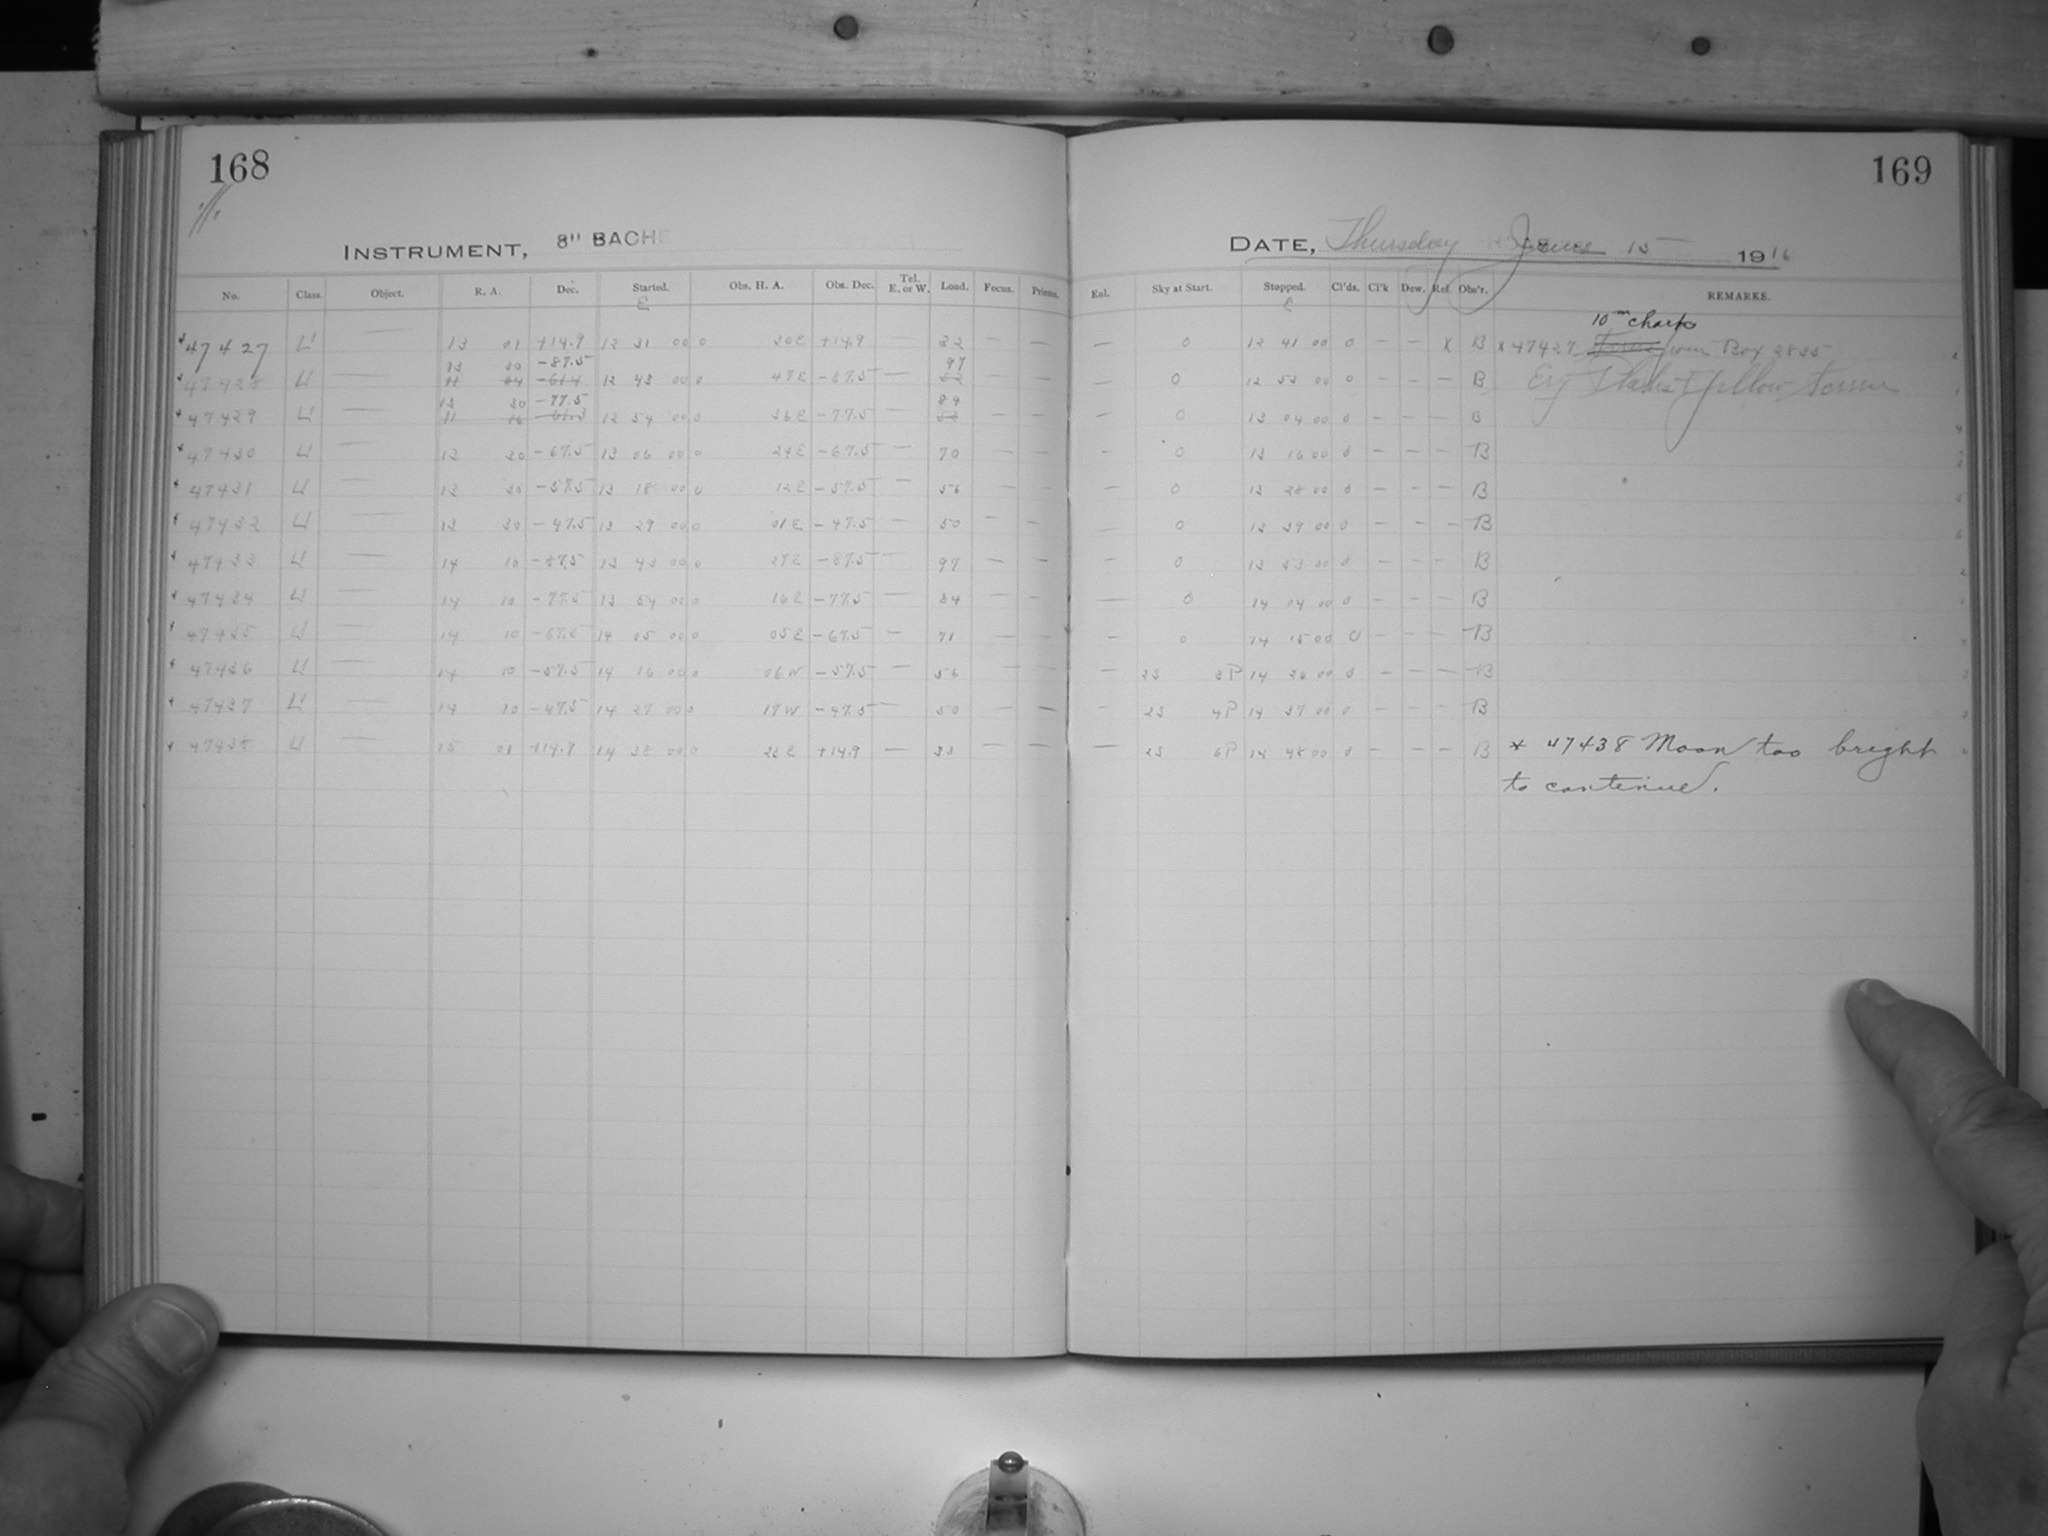 168
169
INSTRUMENT, 8" BACHE
DATE, Thursday June 15 1916
No. Class. Object. R. A. Dec. Started. Obs. H. A. Obs. Dec. Tel. E. or W. Load. Focus. Prisms. Eul. Sky at Start. Stopped. Cl'ds. Cl'k Dew. Ref. Obs'r. REMARKS.
10m charts
47427 L' — 13 01 +14.9 12 31 00 0 30E +14.9 — 32 — — — 0 12 41 00 0 — — X B x 47427 from Box 2835
13 30 -87.5 97
47428 L' — 12 43 00 0 47E -87.5 — — — — 0 12 53 00 0 — — B
13 30 -77.5 84
47429 L' — 12 54 00 0 36E -77.5 — — — — 0 13 04 00 0 — — B
47430 L' — 13 30 -67.5 13 06 00 0 24E -67.5 — 70 — — — 0 13 16 00 0 — — — B
47431 L' — 13 30 -57.5 13 18 00 0 12E -57.5 — 56 — — — 0 13 28 00 0 — — — B
47432 L' — 13 30 -47.5 13 29 00 0 01E -47.5 — 50 — — — 0 13 39 00 0 — — — B
47433 L' — 14 10 -87.5 13 43 00 0 27E -87.5 — 97 — — — 0 13 53 00 0 — — — B
47434 L' — 14 10 -77.5 13 54 00 0 16E -77.5 — 84 — — — 0 14 04 00 0 — — — B
47435 L' — 14 10 -67.5 14 05 00 0 05E -67.5 — 71 — — — 0 14 15 00 0 — — — B
47436 L' — 14 10 -57.5 14 16 00 0 06W -57.5 — 56 — — — 2S 3P 14 26 00 0 — — — B
47437 L' — 14 10 -47.5 14 27 00 0 17W -47.5 — 50 — — — 2S 4P 14 37 00 0 — — — B
47438 L' — 15 01 +14.9 14 38 00 0 23E +14.9 — 33 — — — 2S 6P 14 48 00 0 — — — B x 47438 Moon too bright
to continue.